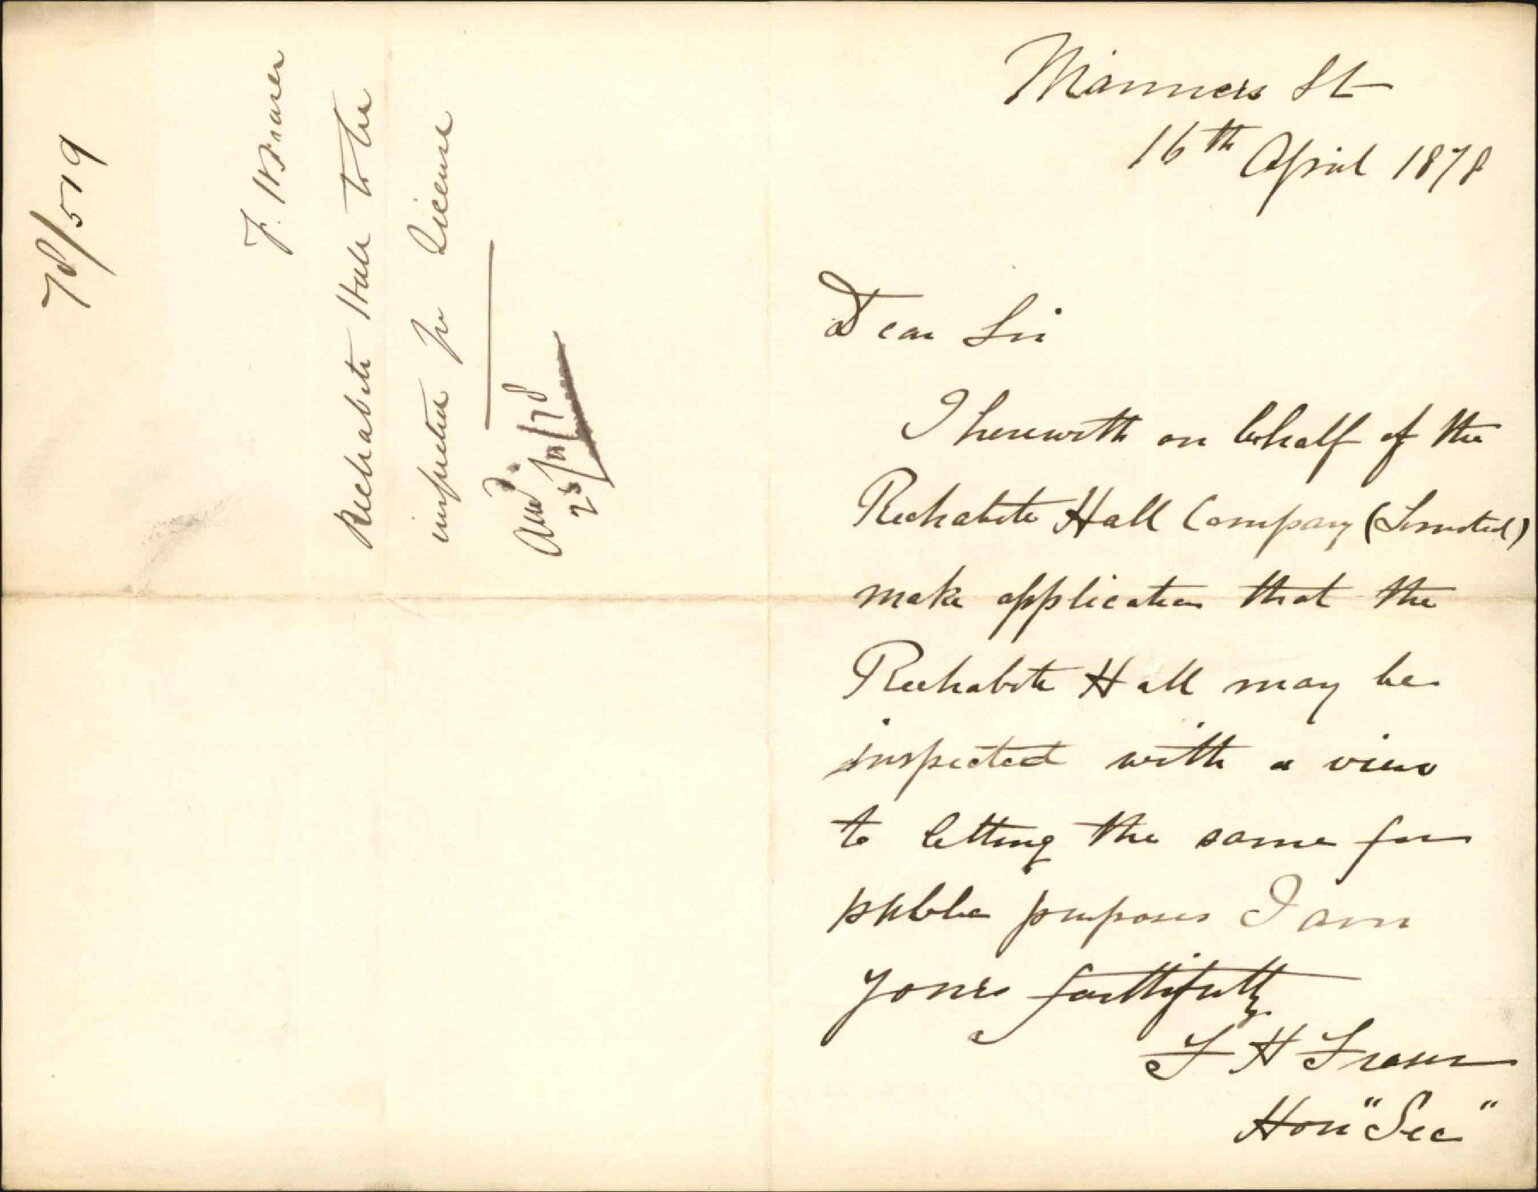 Manners St
16th April 1878
Dear Sir
I herewith on behalf of the
Rechabite Hall Company (Limited)
make application that the
Rechabite Hall may be
inspected with a view
to letting the same for
public purposes I am
yours faithfully
F H Fraser
Hon "Sec"
78/519
Rechabite Hall to be
inspected for License